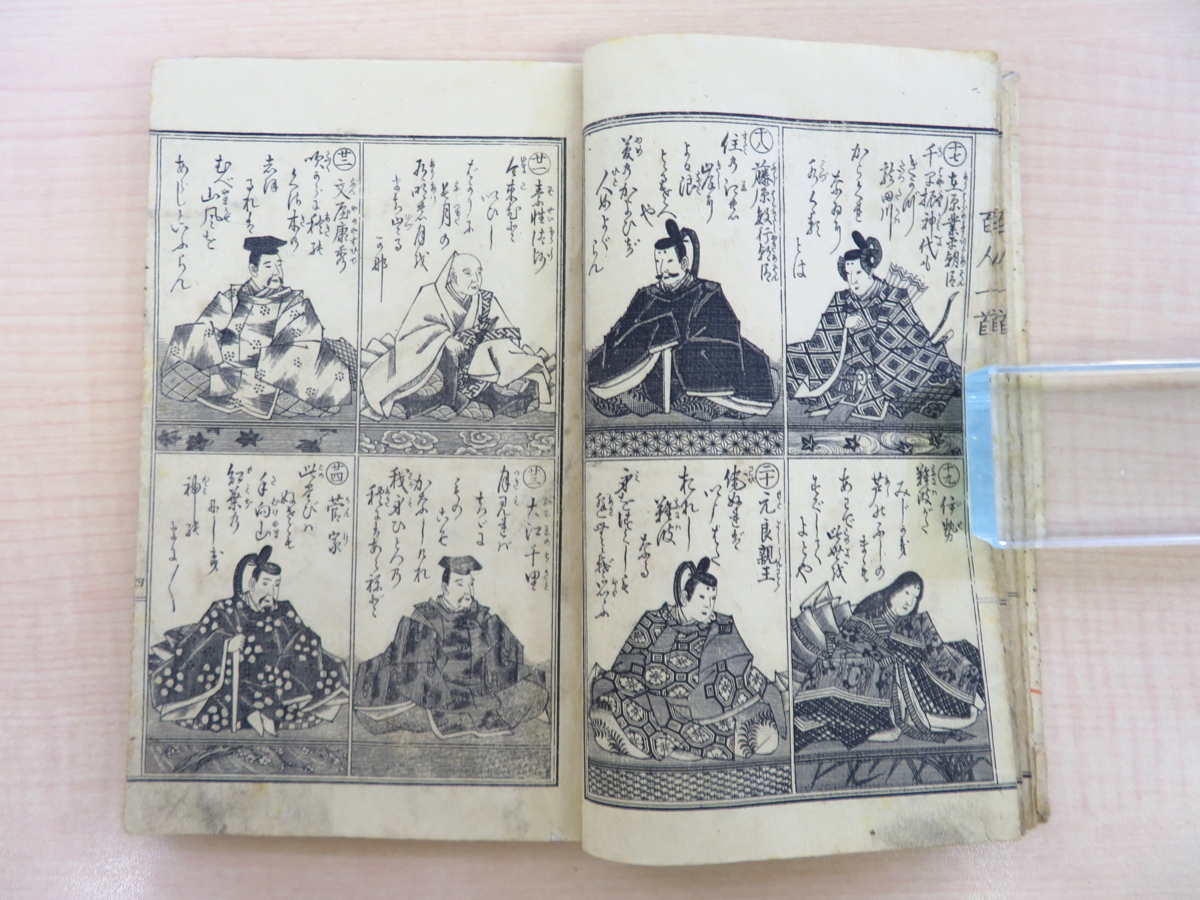 百人一首
十七 在原業平朝臣
千早振神代も
きかず
龍田川
からくれなゐに
水くゝる
とは
十八 藤原敏行朝臣
住の江の
岸に
よる浪
よるさへ
や
夢のかよひぢ
人めよくらん
十九 伊勢
難波がた
みじかき
芦のふしの
まも
あはで
此世を
すぐしてよとや
二十 元良親王
侘ぬれば
今はた
おなじ
難波
なる
身をつくしても
逢んとぞ思ふ
廿一 素性法師
今来むと
いひし
ばかりに
長月の
有明の月を
まち出る
かな
廿二 文屋康秀
吹からに秋の
くさ木の
しをるれば
むべ山風を
あらしといふらん
廿三 大江千里
月見れば
ちゞに
ものこそ
かなしけれ
我身ひとつの
秋にはあらねど
廿四 菅家
此たびは
ぬさも
とりあへず
手向山
紅葉の
にしき
神の
まに〱
四